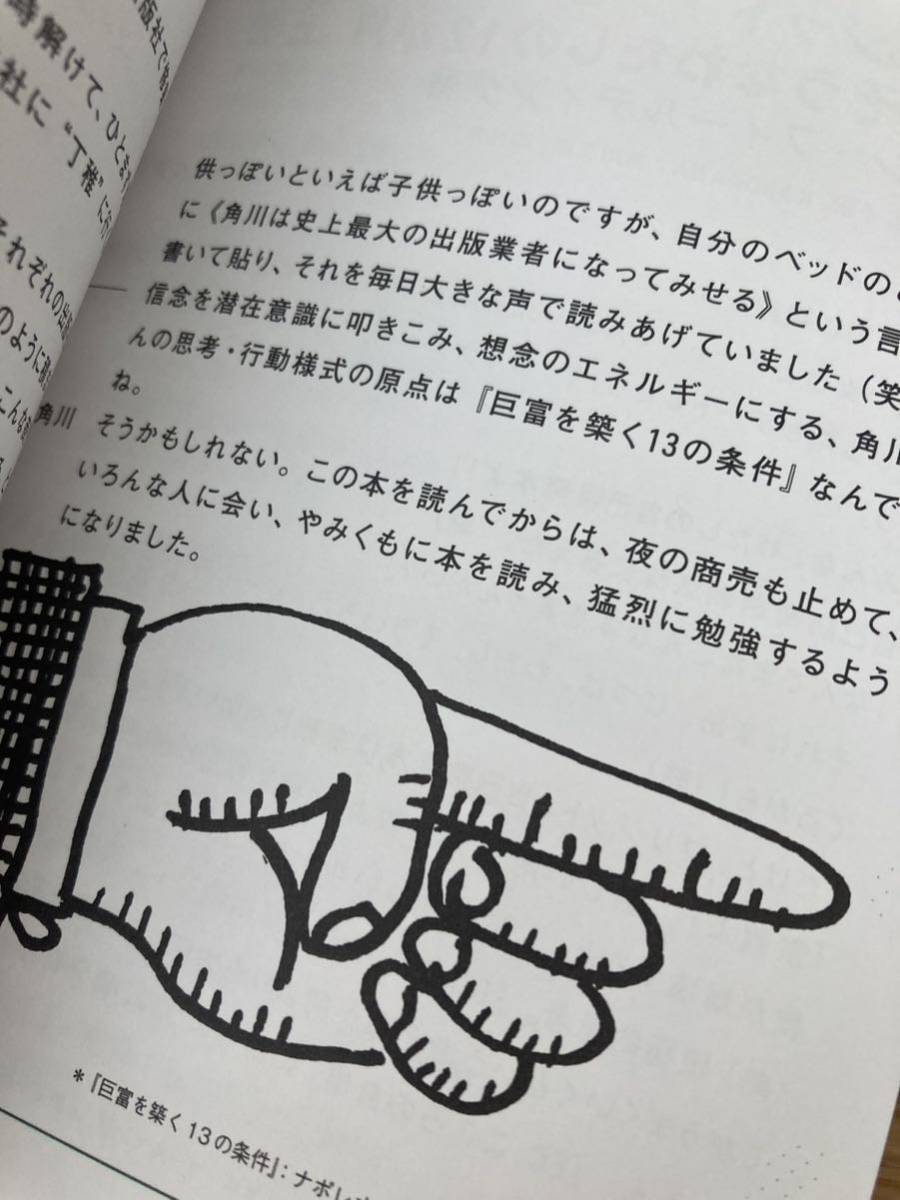 版社で修
時解けて、ひとま
社に“丁稚”に
それぞれの出
のように
こんな
供っぽいといえば子供っぽいのですが、自分のベッドの
に《角川は史上最大の出版業者になってみせる》という言
書いて貼り、それを毎日大きな声で読みあげていました（笑
信念を潜在意識に叩きこみ、想念のエネルギーにする、角川
んの思考・行動様式の原点は『巨富を築く13の条件』なんで
ね。
角川 そうかもしれない。この本を読んでからは、夜の商売も止めて、
いろんな人に会い、やみくもに本を読み、猛烈に勉強するよう
になりました。
＊『巨富を築く13の条件』：ナポレ